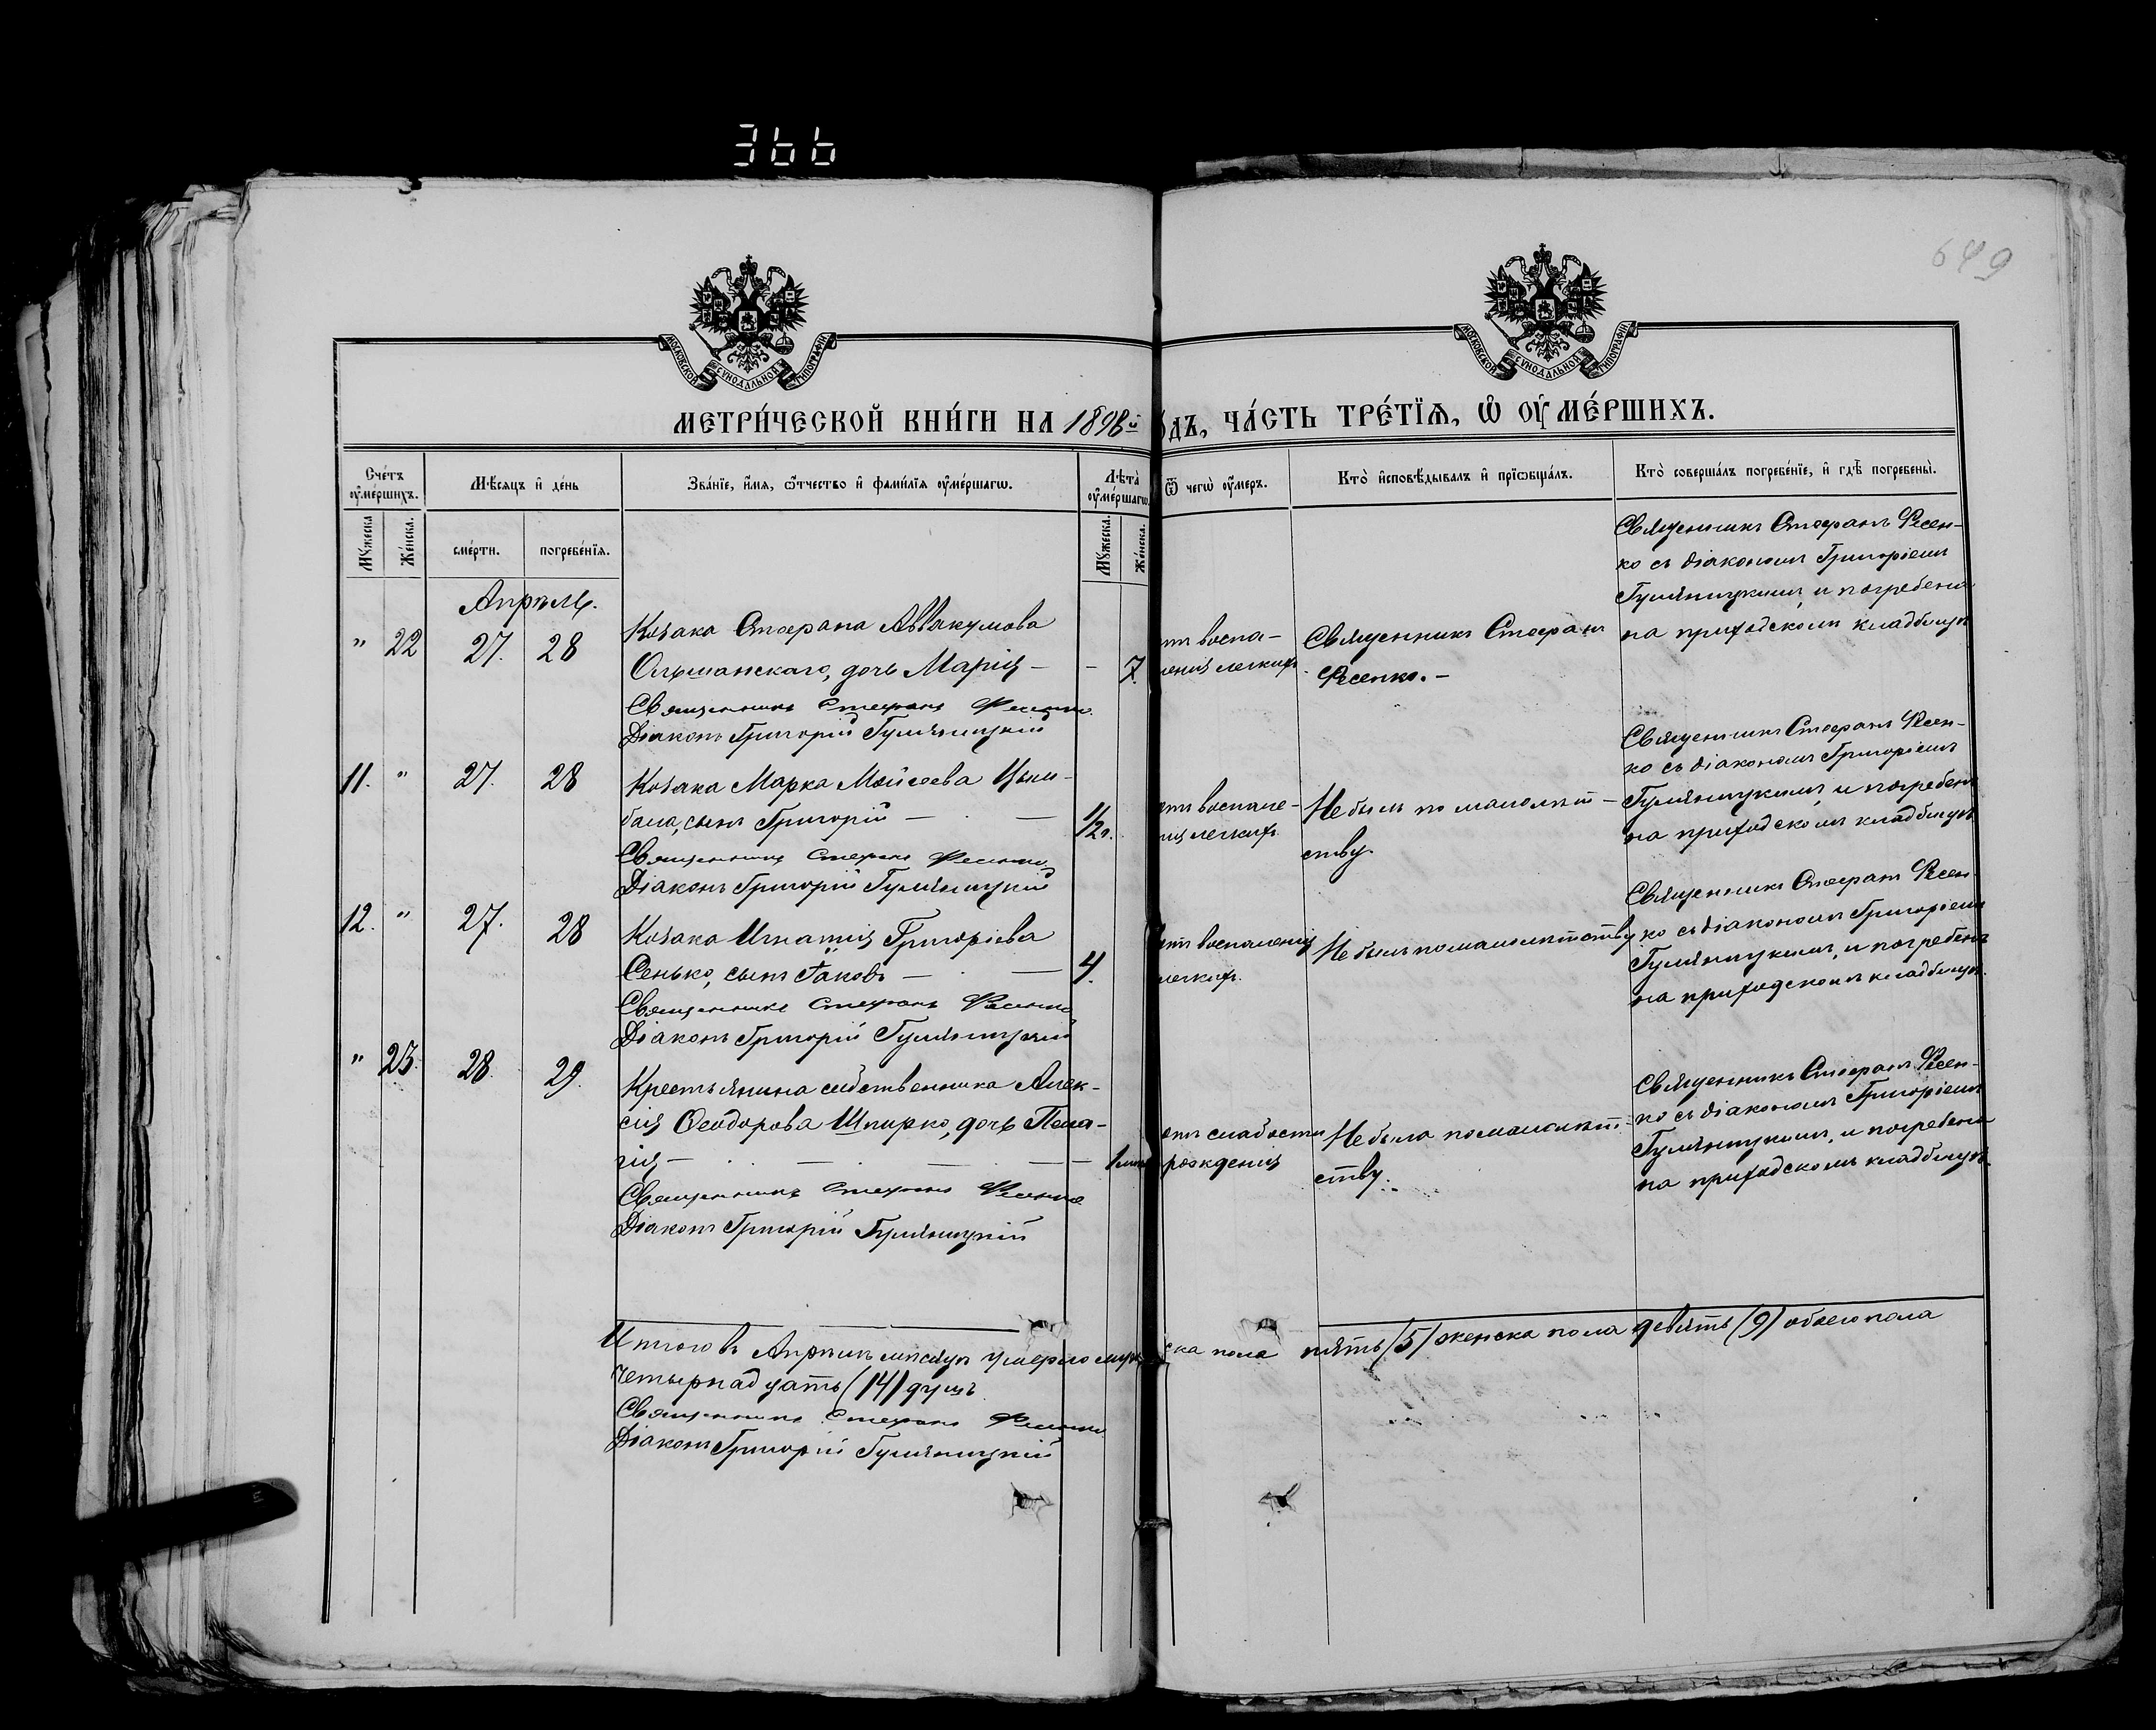 366
649
МОСКОВСКОЙ СУНОДАЛЬНОЙ ТИПОГРАФІИ
МОСКОВСКОЙ СУНОДАЛЬНОЙ ТИПОГРАФІИ
МЕТРИ́ЧЕСКОЙ КНИ́ГИ НА 1898й
ДЪ, ЧА́СТЬ ТРЕ́ТІѦ, Ѡ҆ ОУ҆МЕ́РШИХЪ.
Сче́тъ оу҆ме́ршихъ.
Мꙋжеска
Же́нска.
Мѣ́сяцъ и҆ де́нь
сме́рти.
погребе́нїя.
Зва́нїе, и҆́мя, ѻ҆́тчество и҆ фами́лїя оу҆ме́ршагѡ.
Лѣ́та оу҆ме́ршагѡ.
Мꙋжеска.
Же́нска.
Ѿ чегѡ̀ оу҆́меръ.
Кто̀ и҆сповѣ́дывалъ и҆ прїѡбща́лъ.
Кто̀ соверша́лъ погребе́нїе, и҆ гдѣ̀ погребены̀.
Апрѣль.
" 22 27. 28
Козака Стефана Аввакумова
Ольшанскаго, дочь Марія —
Священникъ Стефанъ Фесенко
Діаконъ Григорій Гуляницкій
- 7.
отъ воспа-
ленія легкихъ
Священникъ Стефанъ
Фесенко. —
Священникъ Стефанъ Фесен-
ко съ діакономъ Григоріемъ
Гуляницкимъ, и погребена
на приходскомъ кладбищѣ
11. " 27. 28
Козака Марка Мойсеева Цым-
бала, сынъ Григорій — . —
Священникъ Стефанъ Фесенко
Діаконъ Григорій Гуляницкій
1/2 г.
отъ воспале-
нія легкихъ
Не былъ по малолѣт-
ству.
Священникъ Стефанъ Фесен-
ко съ діакономъ Григоріемъ
Гуляницкимъ, и погребенъ
на приходскомъ кладбищѣ
12. " 27. 28
Козака Игнатія Григоріева
Сенько, сынъ Іаковъ — . —
Священникъ Стефанъ Фесенко
Діаконъ Григорій Гуляницкій
4.
отъ воспаленія
легкихъ.
Не былъ по малолѣтству
Священникъ Стефанъ Фесен-
ко съ діакономъ Григоріемъ
Гуляницкимъ, и погребенъ
на приходскомъ кладбищѣ.
" 23. 28. 29.
Крестьянина собственника Алек-
сія Ѳеодорова Шпирко, дочь Пела-
гія — . — . — . —
Священникъ Стефанъ Фесенко
Діаконъ Григорій Гуляницкій
отъ слабости
рожденія
Не была по малолѣт-
ству.
Священникъ Стефанъ Фесен-
ко съ діакономъ Григоріемъ
Гуляницкимъ, и погребена
на приходскомъ кладбищѣ.
Итого въ Апрѣлѣ мѣсяцѣ умерло мужеска пола пять (5) женска пола девять (9) обоего пола
четырнадцать (14) душъ.
Священникъ Стефанъ Фесенко
Діаконъ Григорій Гуляницкій